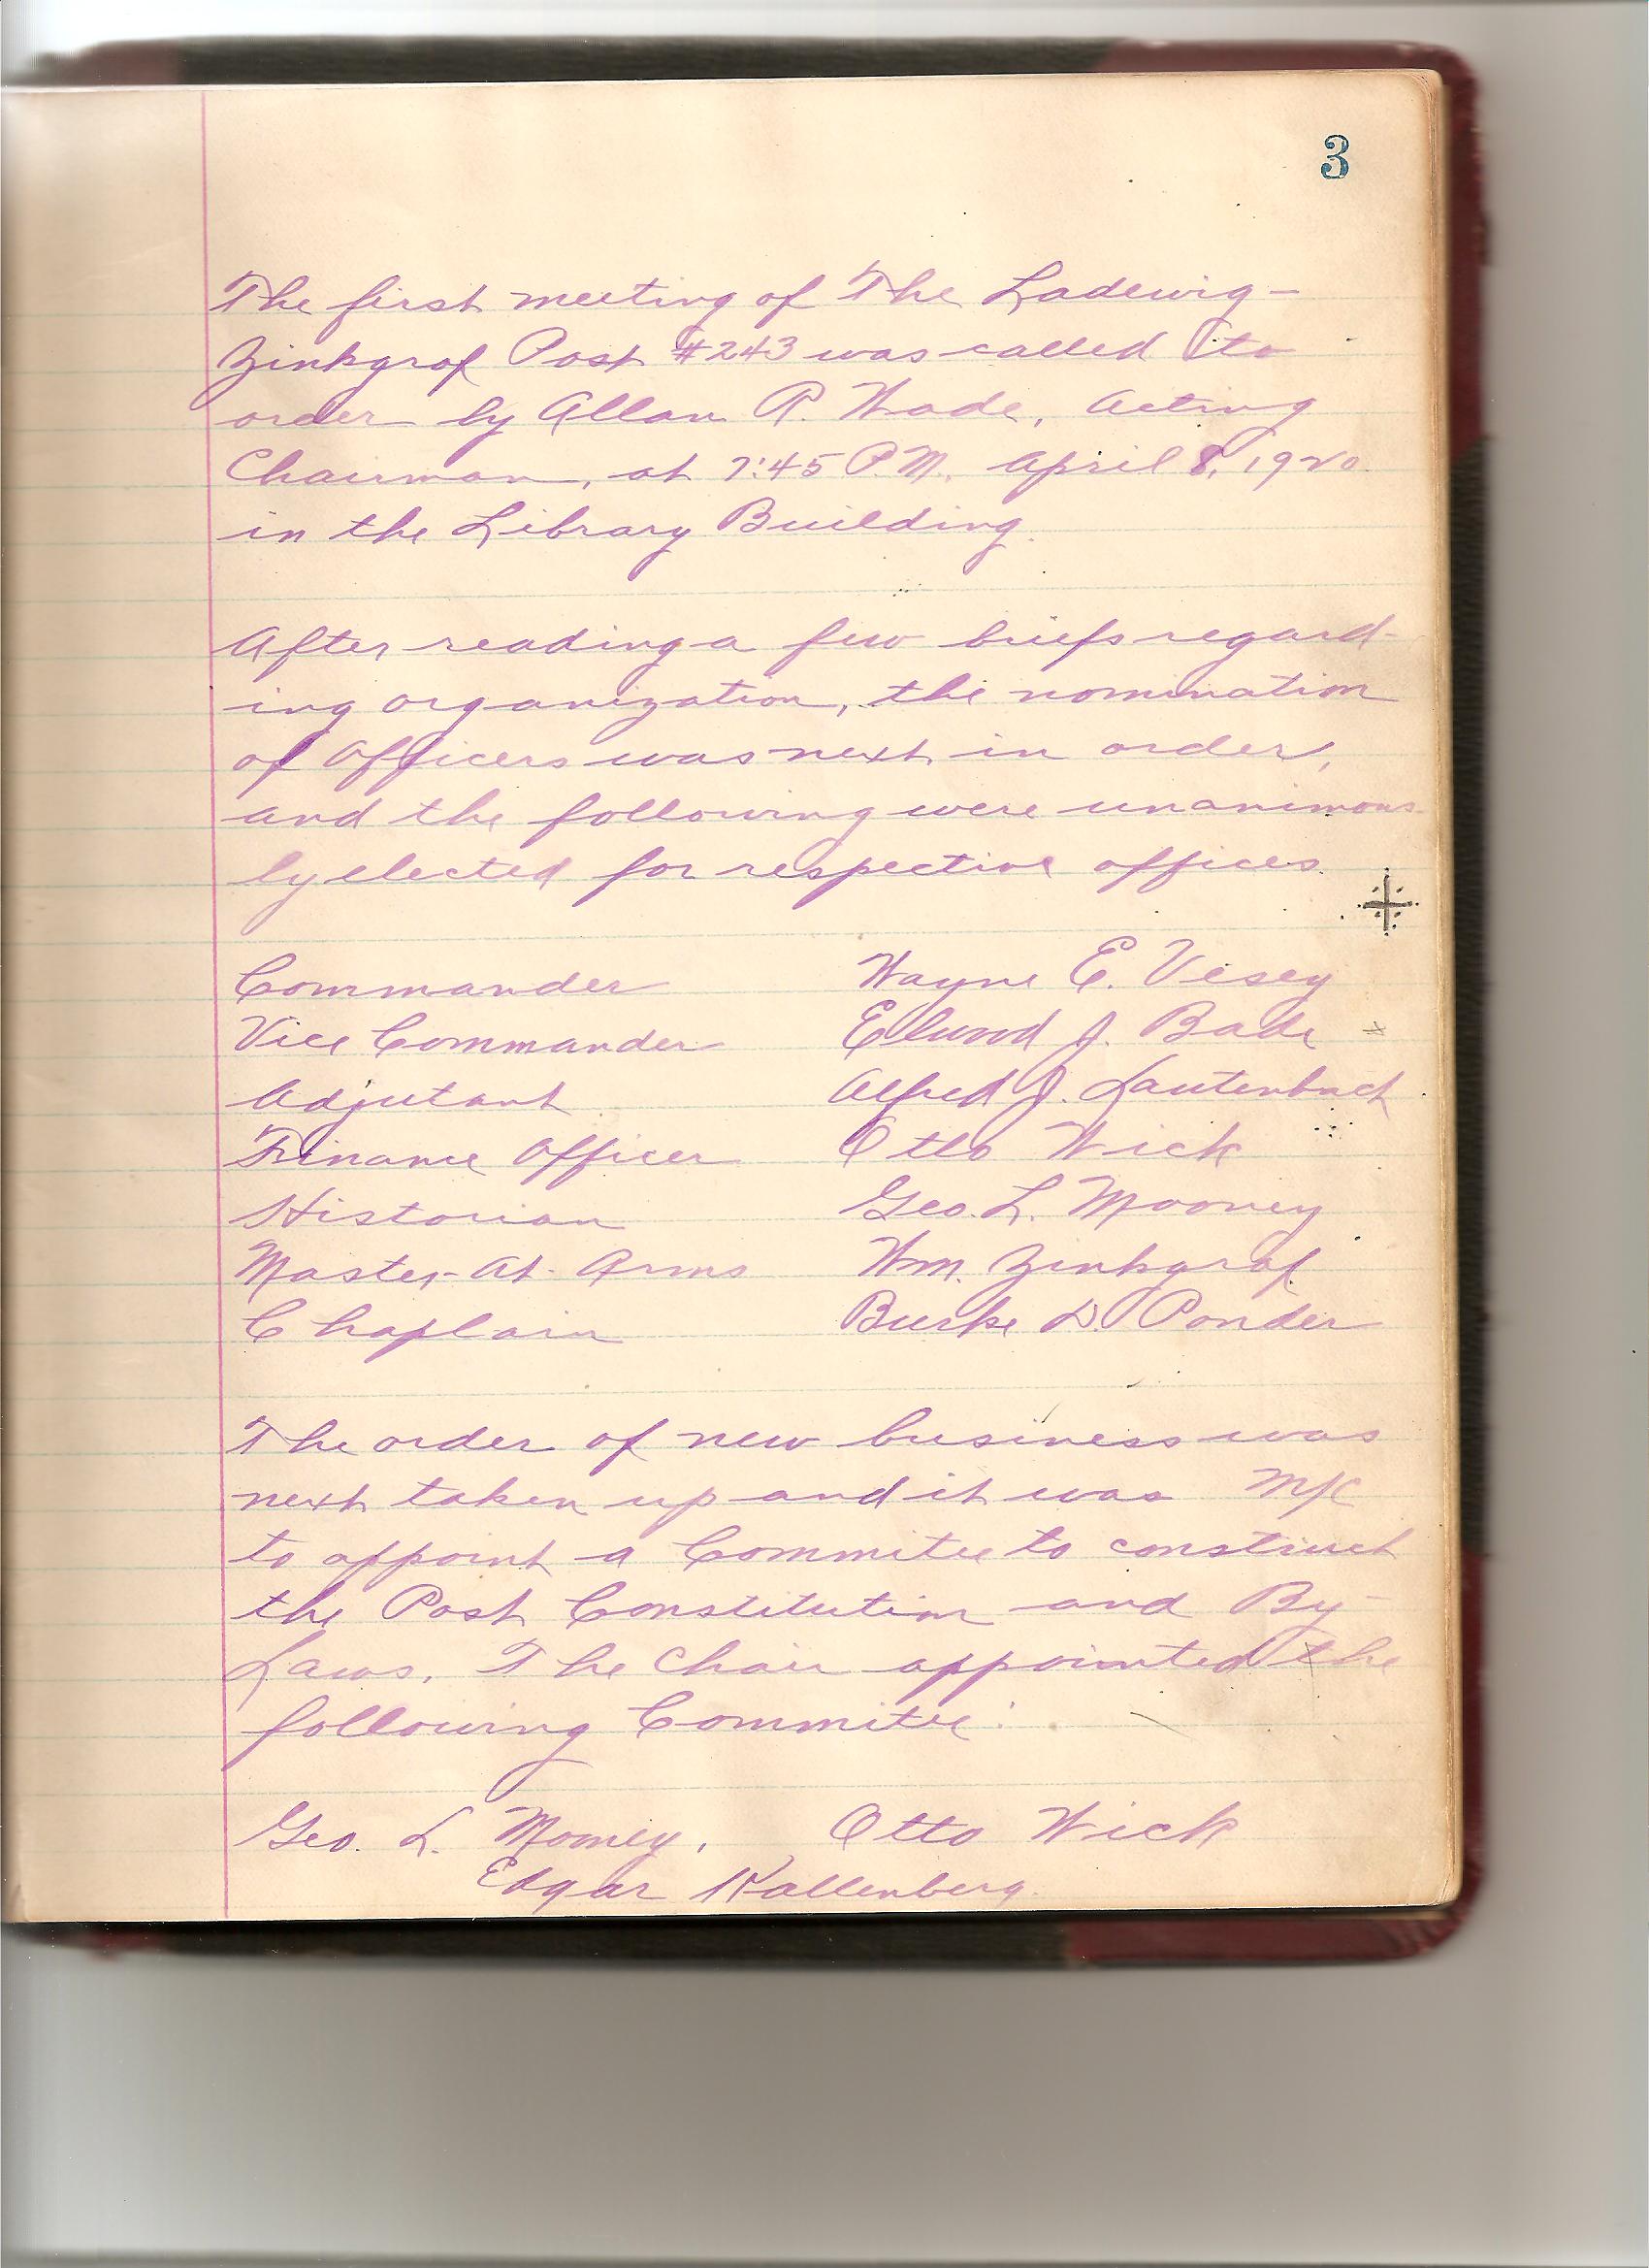 3
The first meeting of The Ladewig-
Zinkgraf Post #243 was called to
order by Allan R. Wade, Acting
Chairman, at 7:45 P.M. April 8, 1920
in the Library Building.
After reading a few briefs regard-
ing organization, the nomination
of Officers was next in order,
and the following were unanimous-
ly elected for respective offices.
Commander Wayne E. Vesey
Vice Commander Elwood J. Bade
Adjutant Alfred J. Lautenbach
Finance Officer Otto Wick
Historian Geo. L. Mooney
Master-At-Arms Wm. Zinkgraf
Chaplain Burke D. Ponder
The order of new business was
next taken up and it was
to appoint a Committee to construct
the Post Constitution and By-
Laws. The Chair appointed the
following Committee:
Geo. L. Mooney, Otto Wick
Edgar Kallenberg.